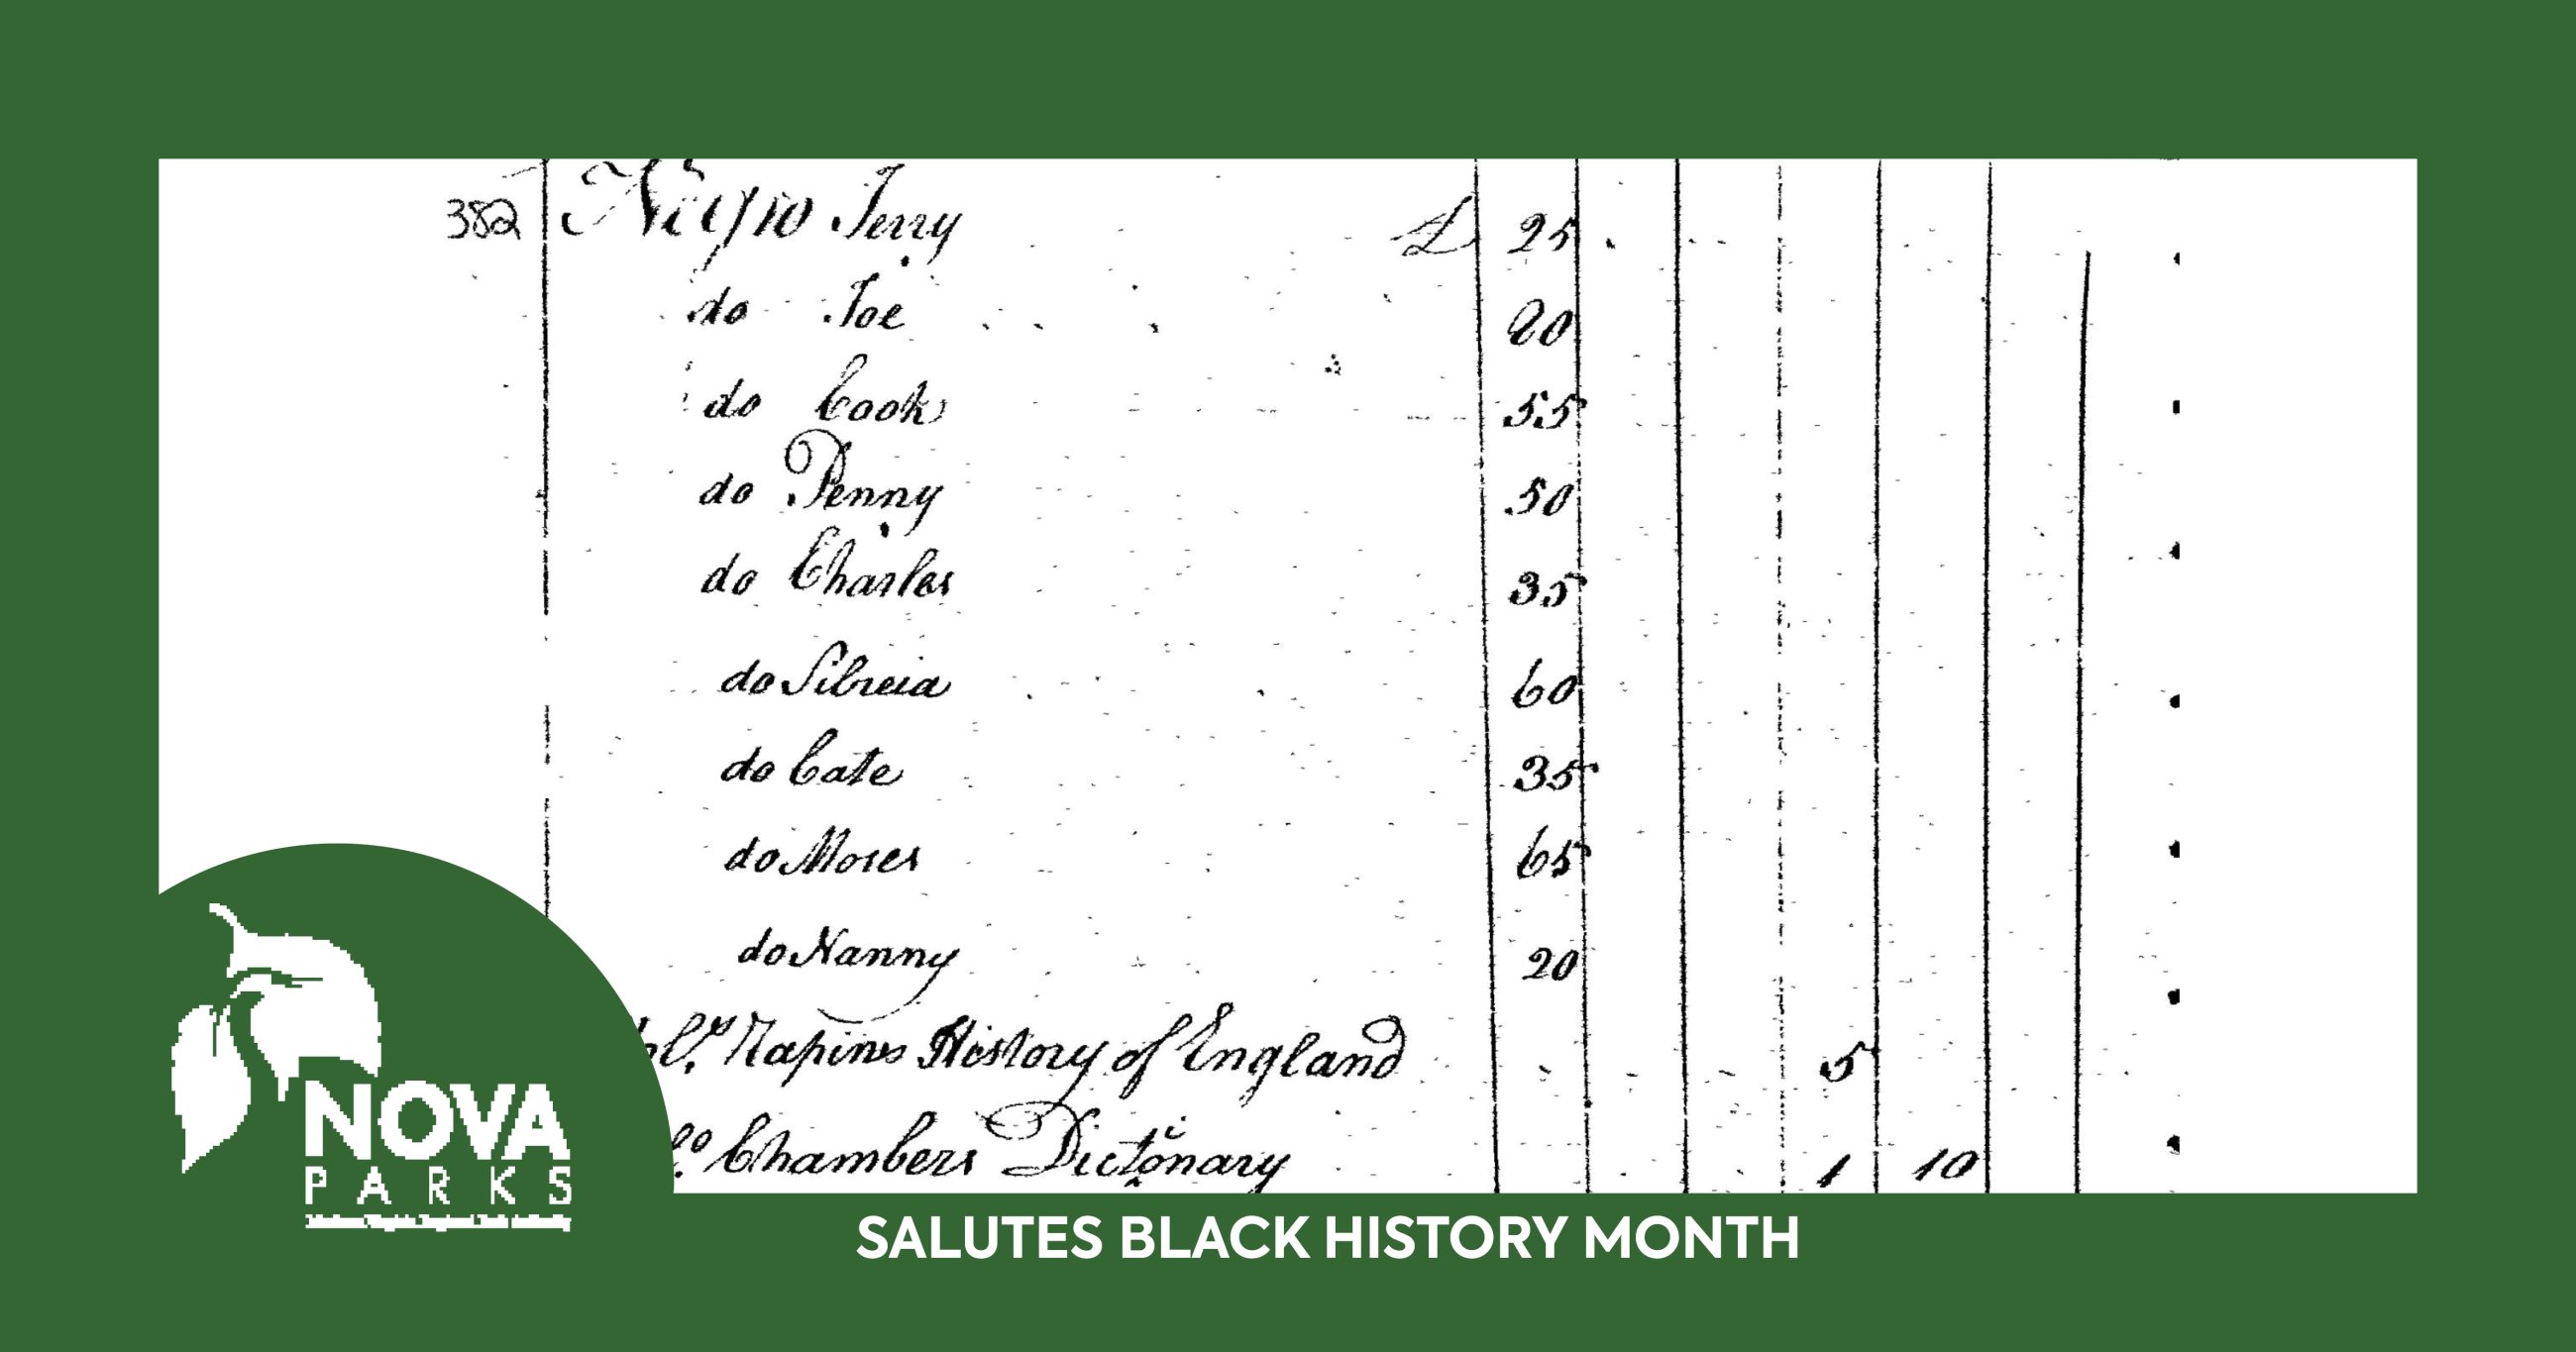 382 Negro Jerry £ 25
do Joe 20
do Cook 55
do Penny 50
do Charles 35
do Silveia 60
do Cate 35
do Moses 65
do Nanny 20
Rapins History of England 5
Chambers Dictonary 1 10
NOVA
PARKS
SALUTES BLACK HISTORY MONTH